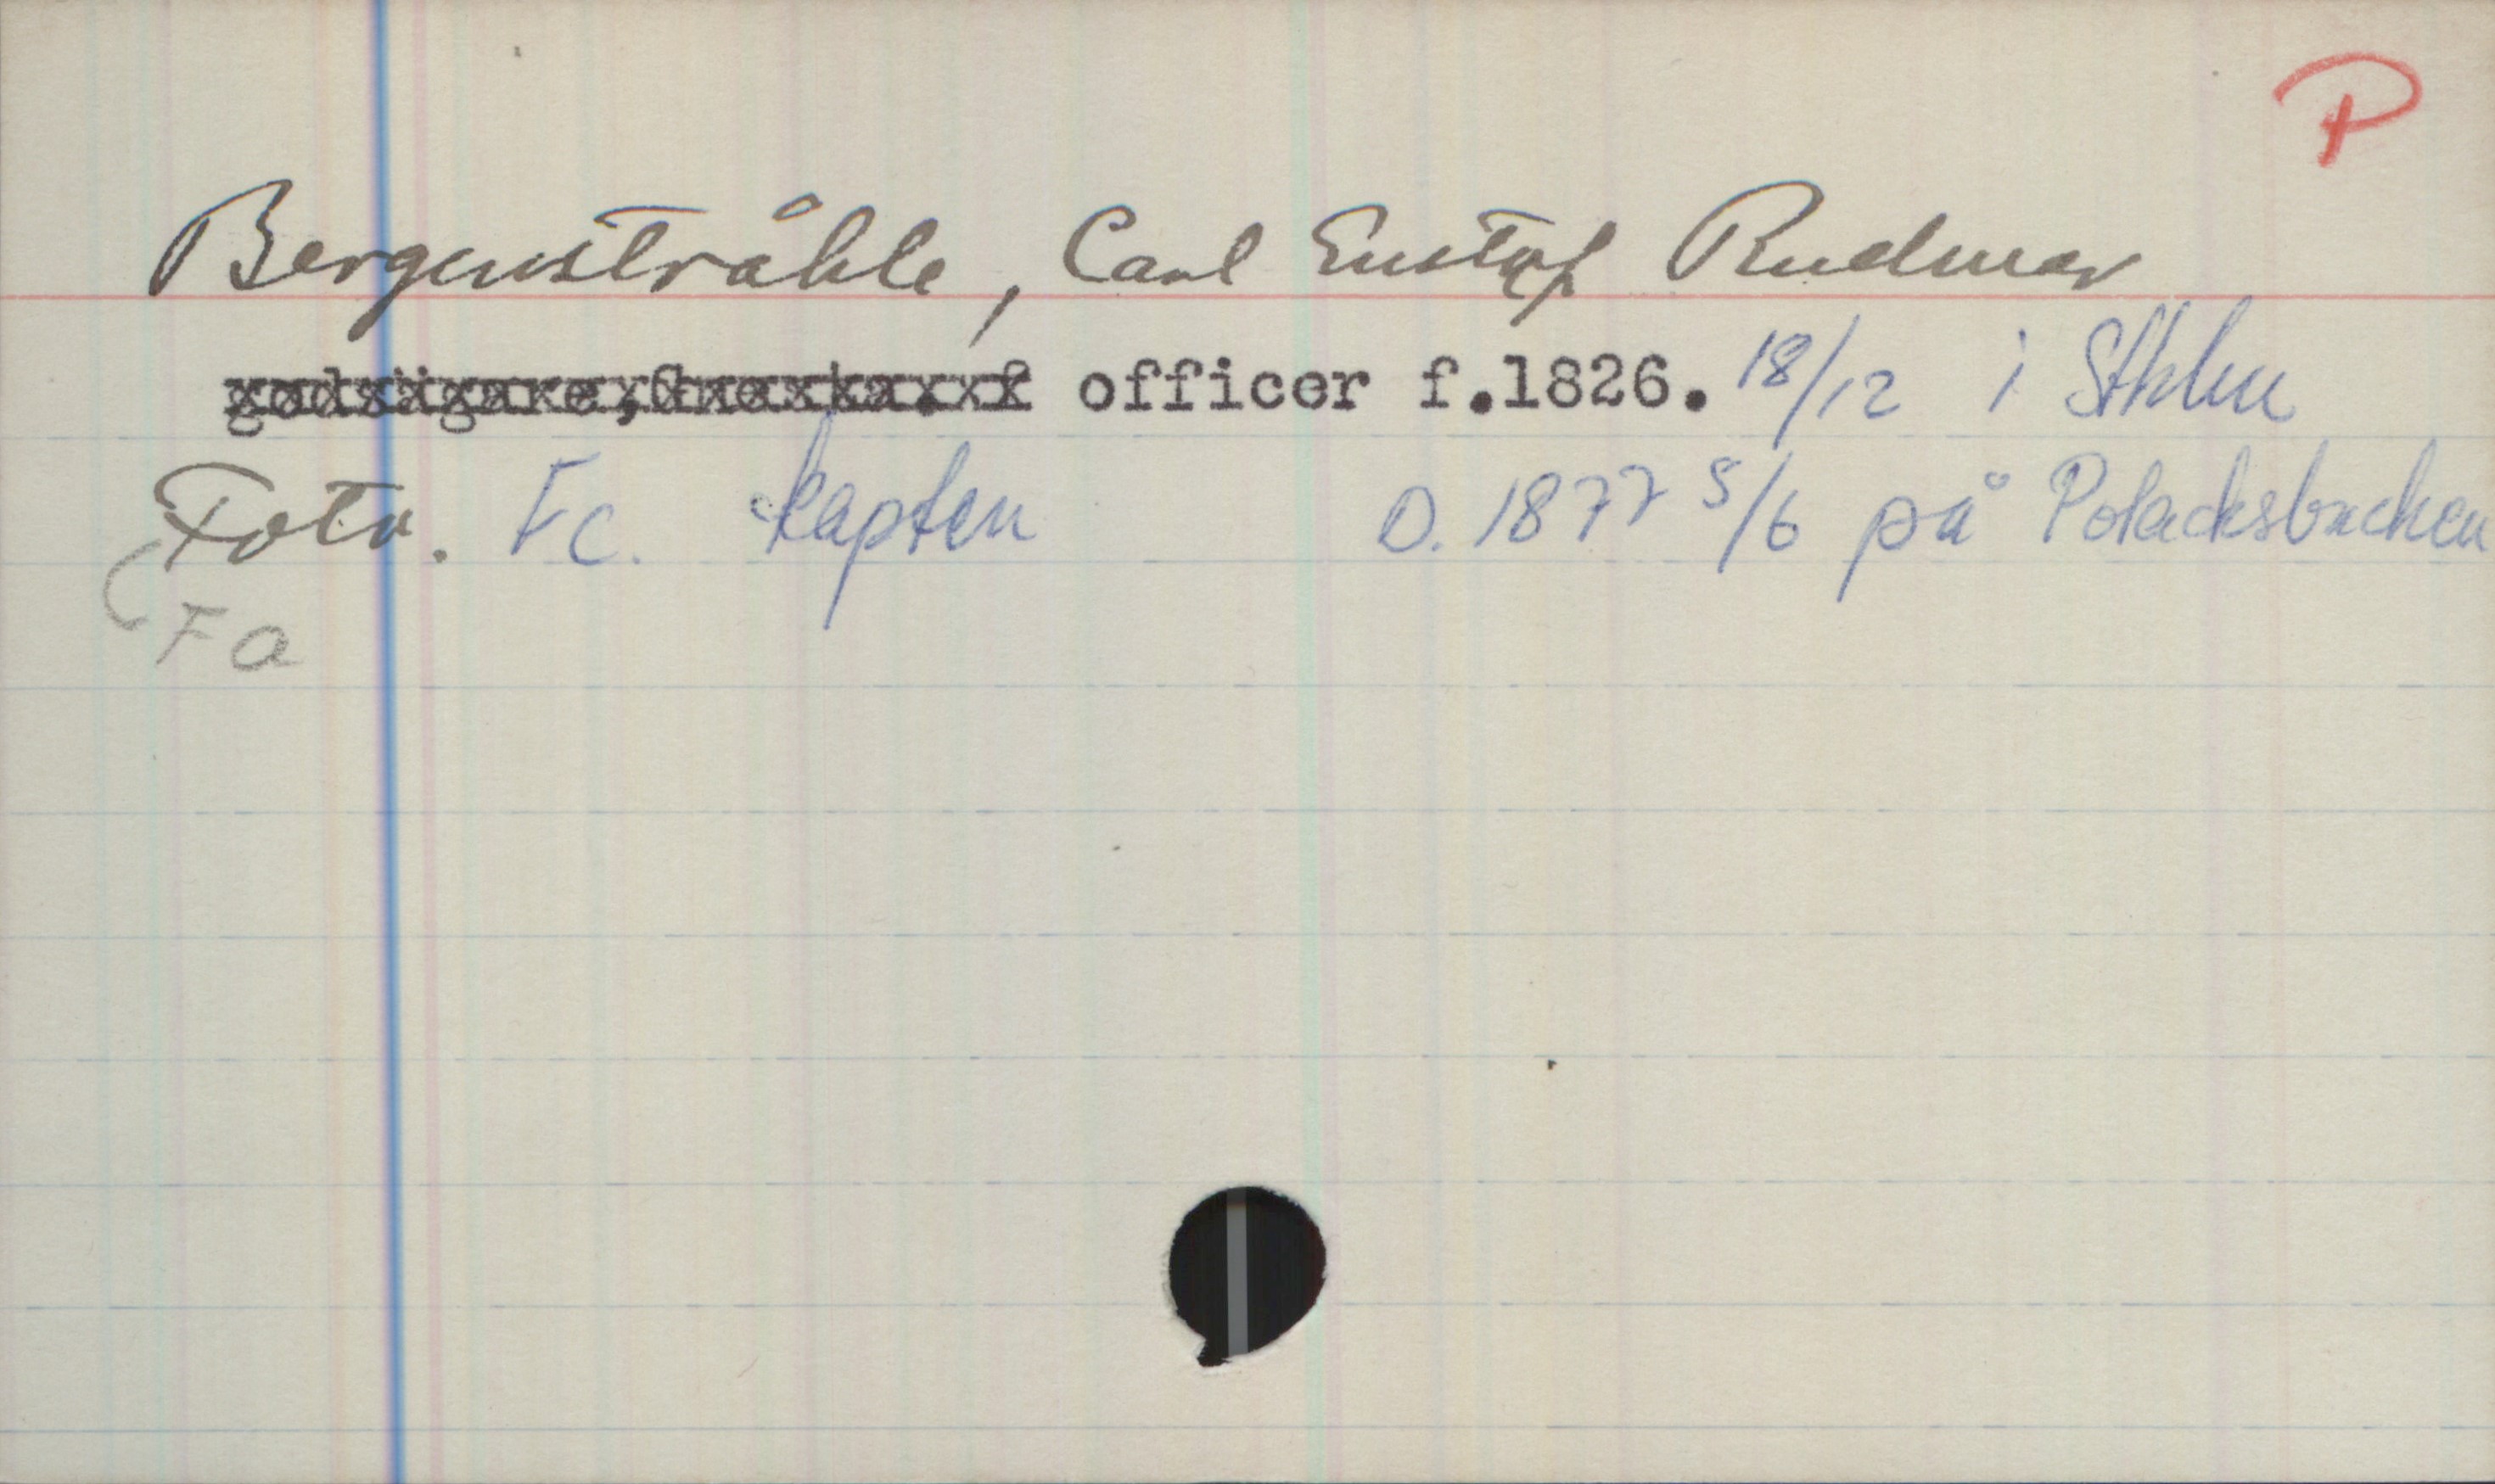 P
Bergenstråhle, Carl Gustaf Rudmar
godsägare, officer f.1826. 18/12 i Sthlm
Foto. Fc. kapten D. 1877 5/6 på Polacksbacken
Fa